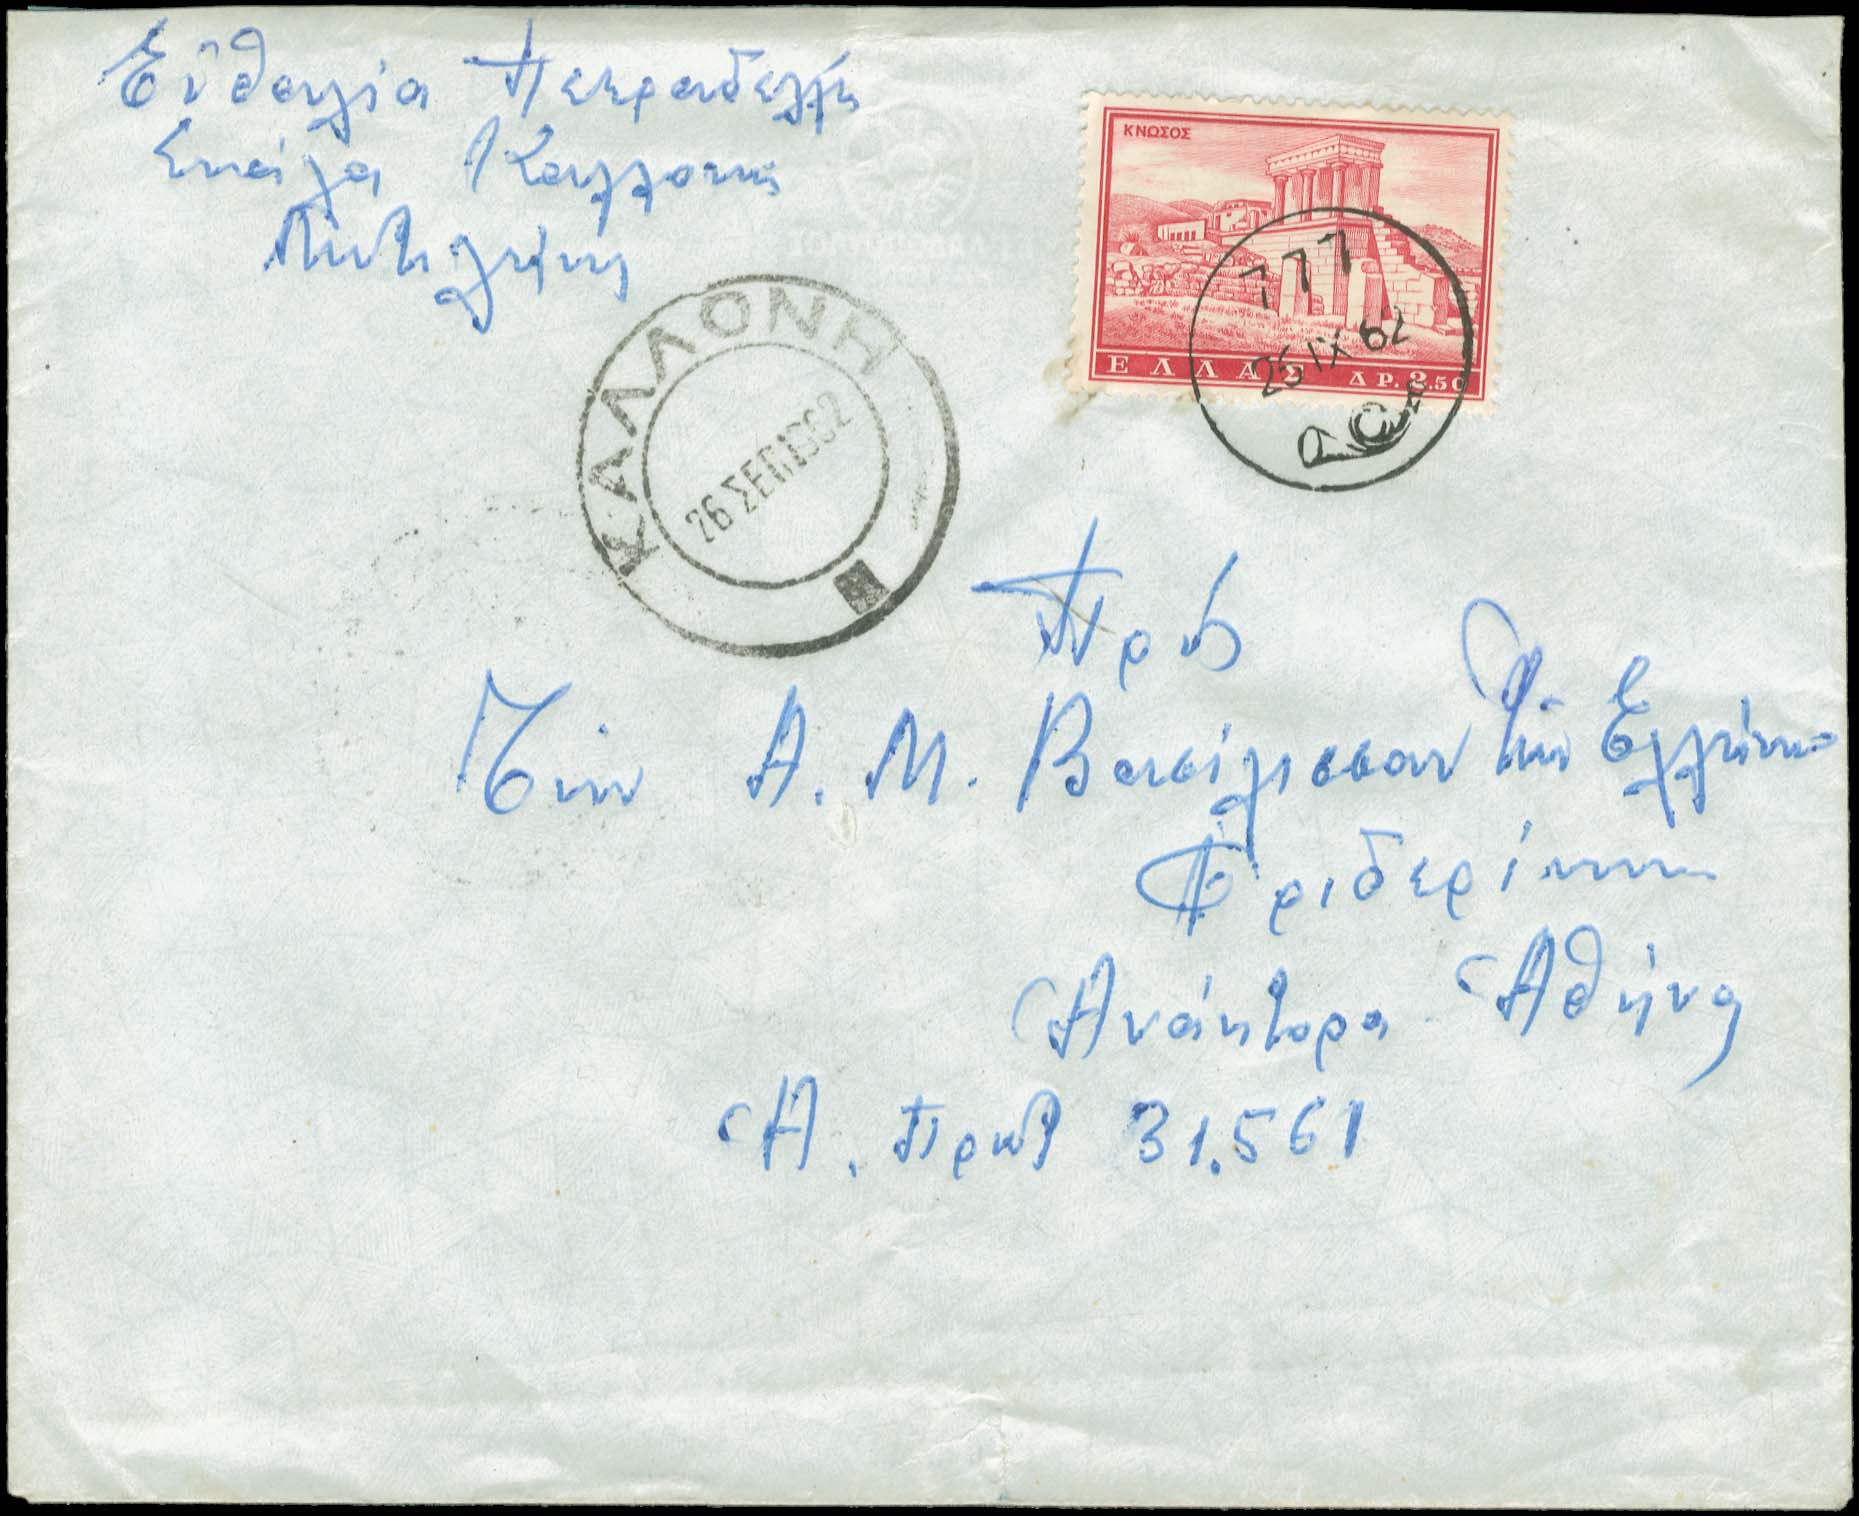 Εὐθαλία Πετραδέλλη
Σκάλα Καλλονης
Μυτιλήνης
ΚΝΩΣΟΣ
ΕΛΛΑΣ ΔΡ. 2.50
777
25 IX 62
ΚΑΛΛΟΝΗ
26 ΣΕΠ 1962
Πρός
Τήν Α. Μ. Βασίλισσαν τῶν Ἑλλήνων
Φριδερίκην
Ἀνάκτορα Ἀθήνας
Ἀ. πρωτ 31.561